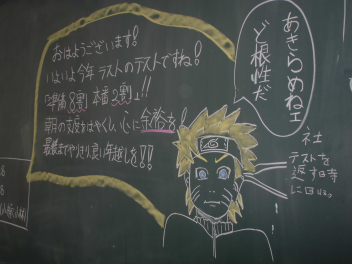 おはようございます!
いよいよ今年 ラストのテストですね!
「準備8割 本番2割」!!
朝の支度をはやくし、心に余裕を!
最後までやりきり良い年越しを!!
あきらめねェ
ど根性だ
社
テストを
返す時